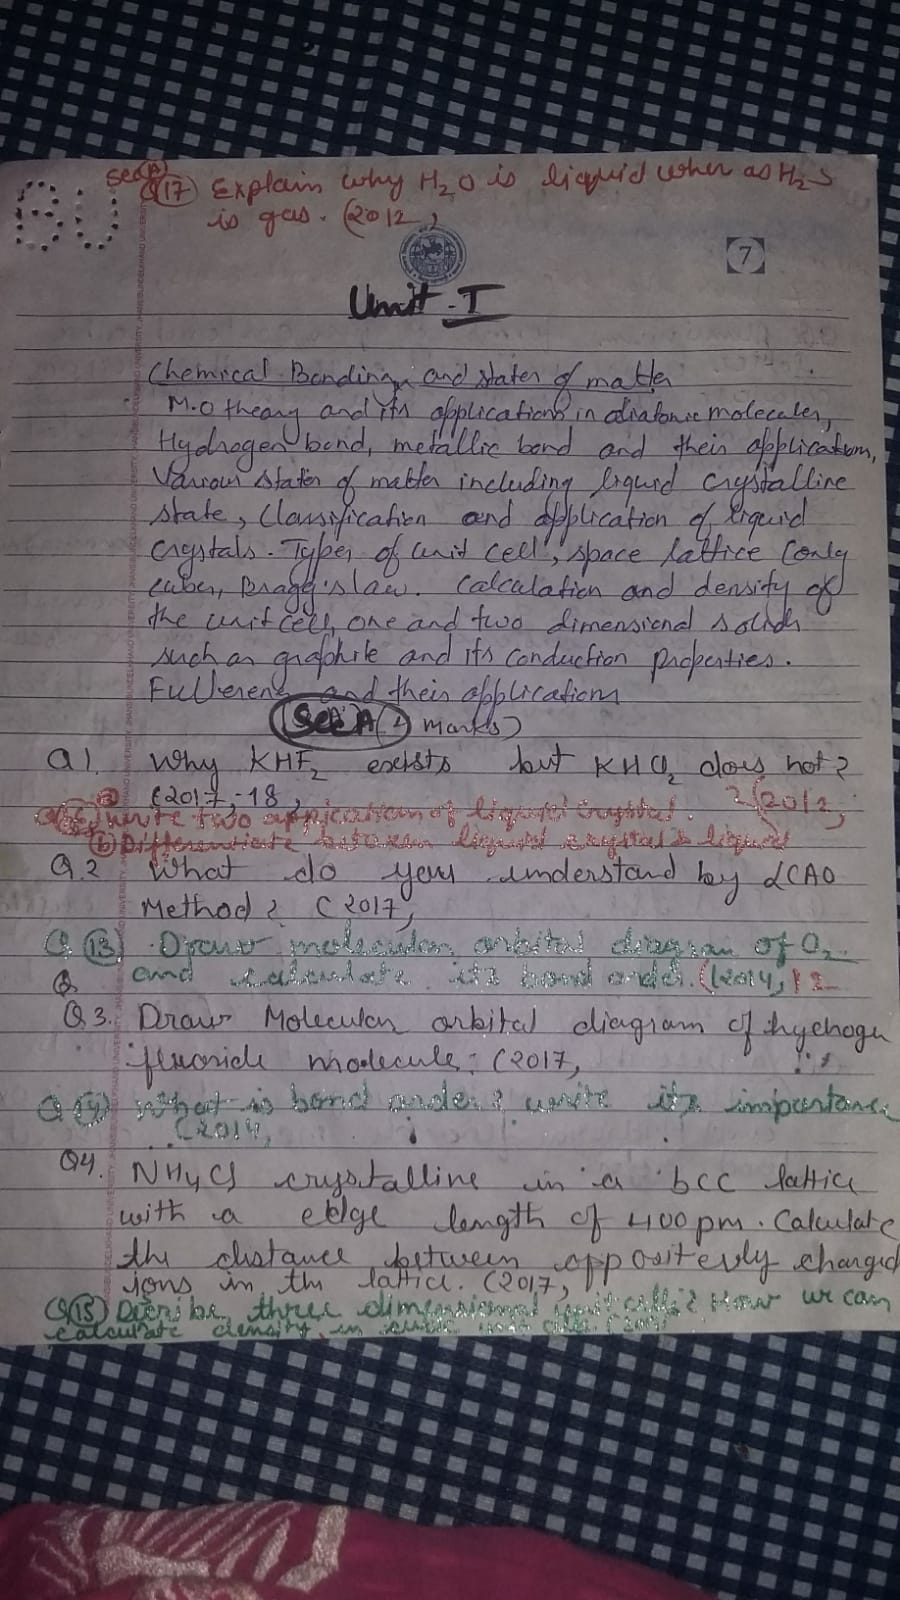 Sec A
Q 17) Explain why H2O is liquid wher as H2S
is gas. (2012,
BU
7
Unit - I
Chemical Bonding and states of matter
M.O theory and its applications in diatomic molecules,
Hydrogen bond, metallic bond and their application,
Various states of matter including liquid crystalline
state, Classification and application of liquid
crystals. Types of unit cell, space lattice (only
cubes, Bragg's law. Calculation and density of
the unit cell, one and two dimensional solids
such as graphite and its conduction properties.
Fullerene and their applications
(Sec A (2 marks)
Q1. Why KHF2 exists but KHCl2 does not?
(2017,-18,
a) write two application of liquid crystal. (2012,
(b) Differentiate between liquid crystal & liquid
Q.2 What do you understand by LCAO
Method? (2017,
Q (13) Draw molecular orbital diagram of O2
and calculate its bond order. (2014, 12
Q
Q3. Draw Molecular orbital diagram of hydroge
fluoride molecule: (2017,
Q (14) What is bond order? write its importance
(2014,
Q4. NH4Cl crystalline in a bcc lattice
with a edge length of 400 pm. Calculate
the distance between oppositerly charged
ions in the lattice. (2017,
Q (15) Decribe three dimensional unit cell? How we can
calculate density in cubic unit cell.